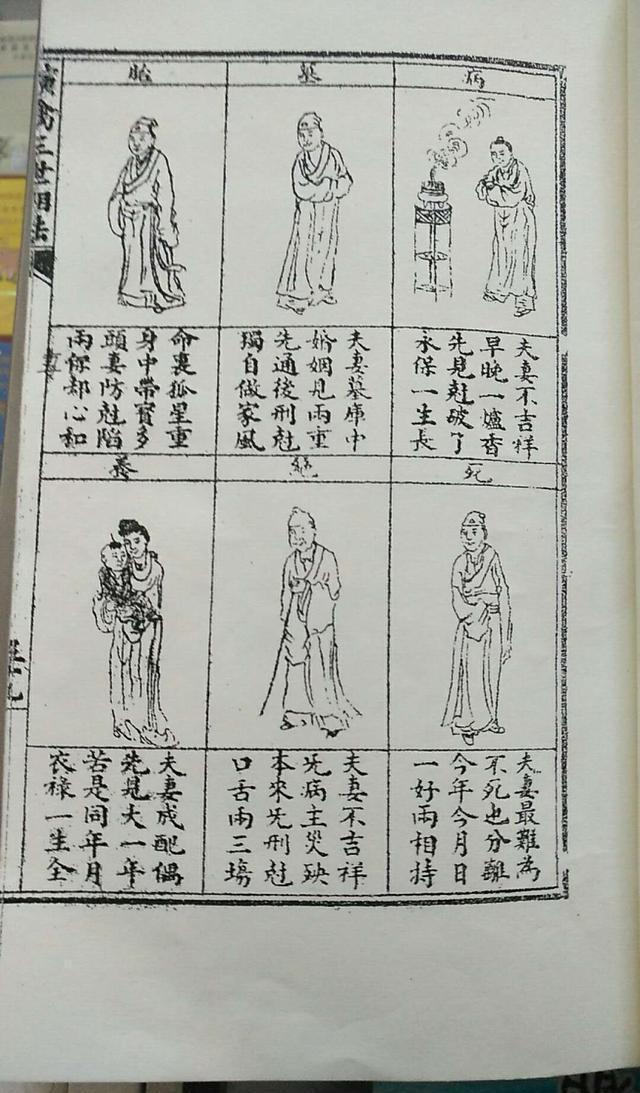 演禽三世相法
病
夫妻不吉祥
早晚一爐香
先見尅破了
永保一生長
墓
夫妻墓庫中
婚姻見兩重
先通後刑尅
獨自做家風
胎
命裏孤星重
身中帶寳多
頭妻防尅陷
兩保却心和
死
夫妻最難為
不死也分離
今年今月日
一好兩相持
絕
夫妻不吉祥
先病主災殃
本來先刑尅
口舌兩三塲
養
夫妻成配偶
先見大一年
若是同年月
衣祿一生全